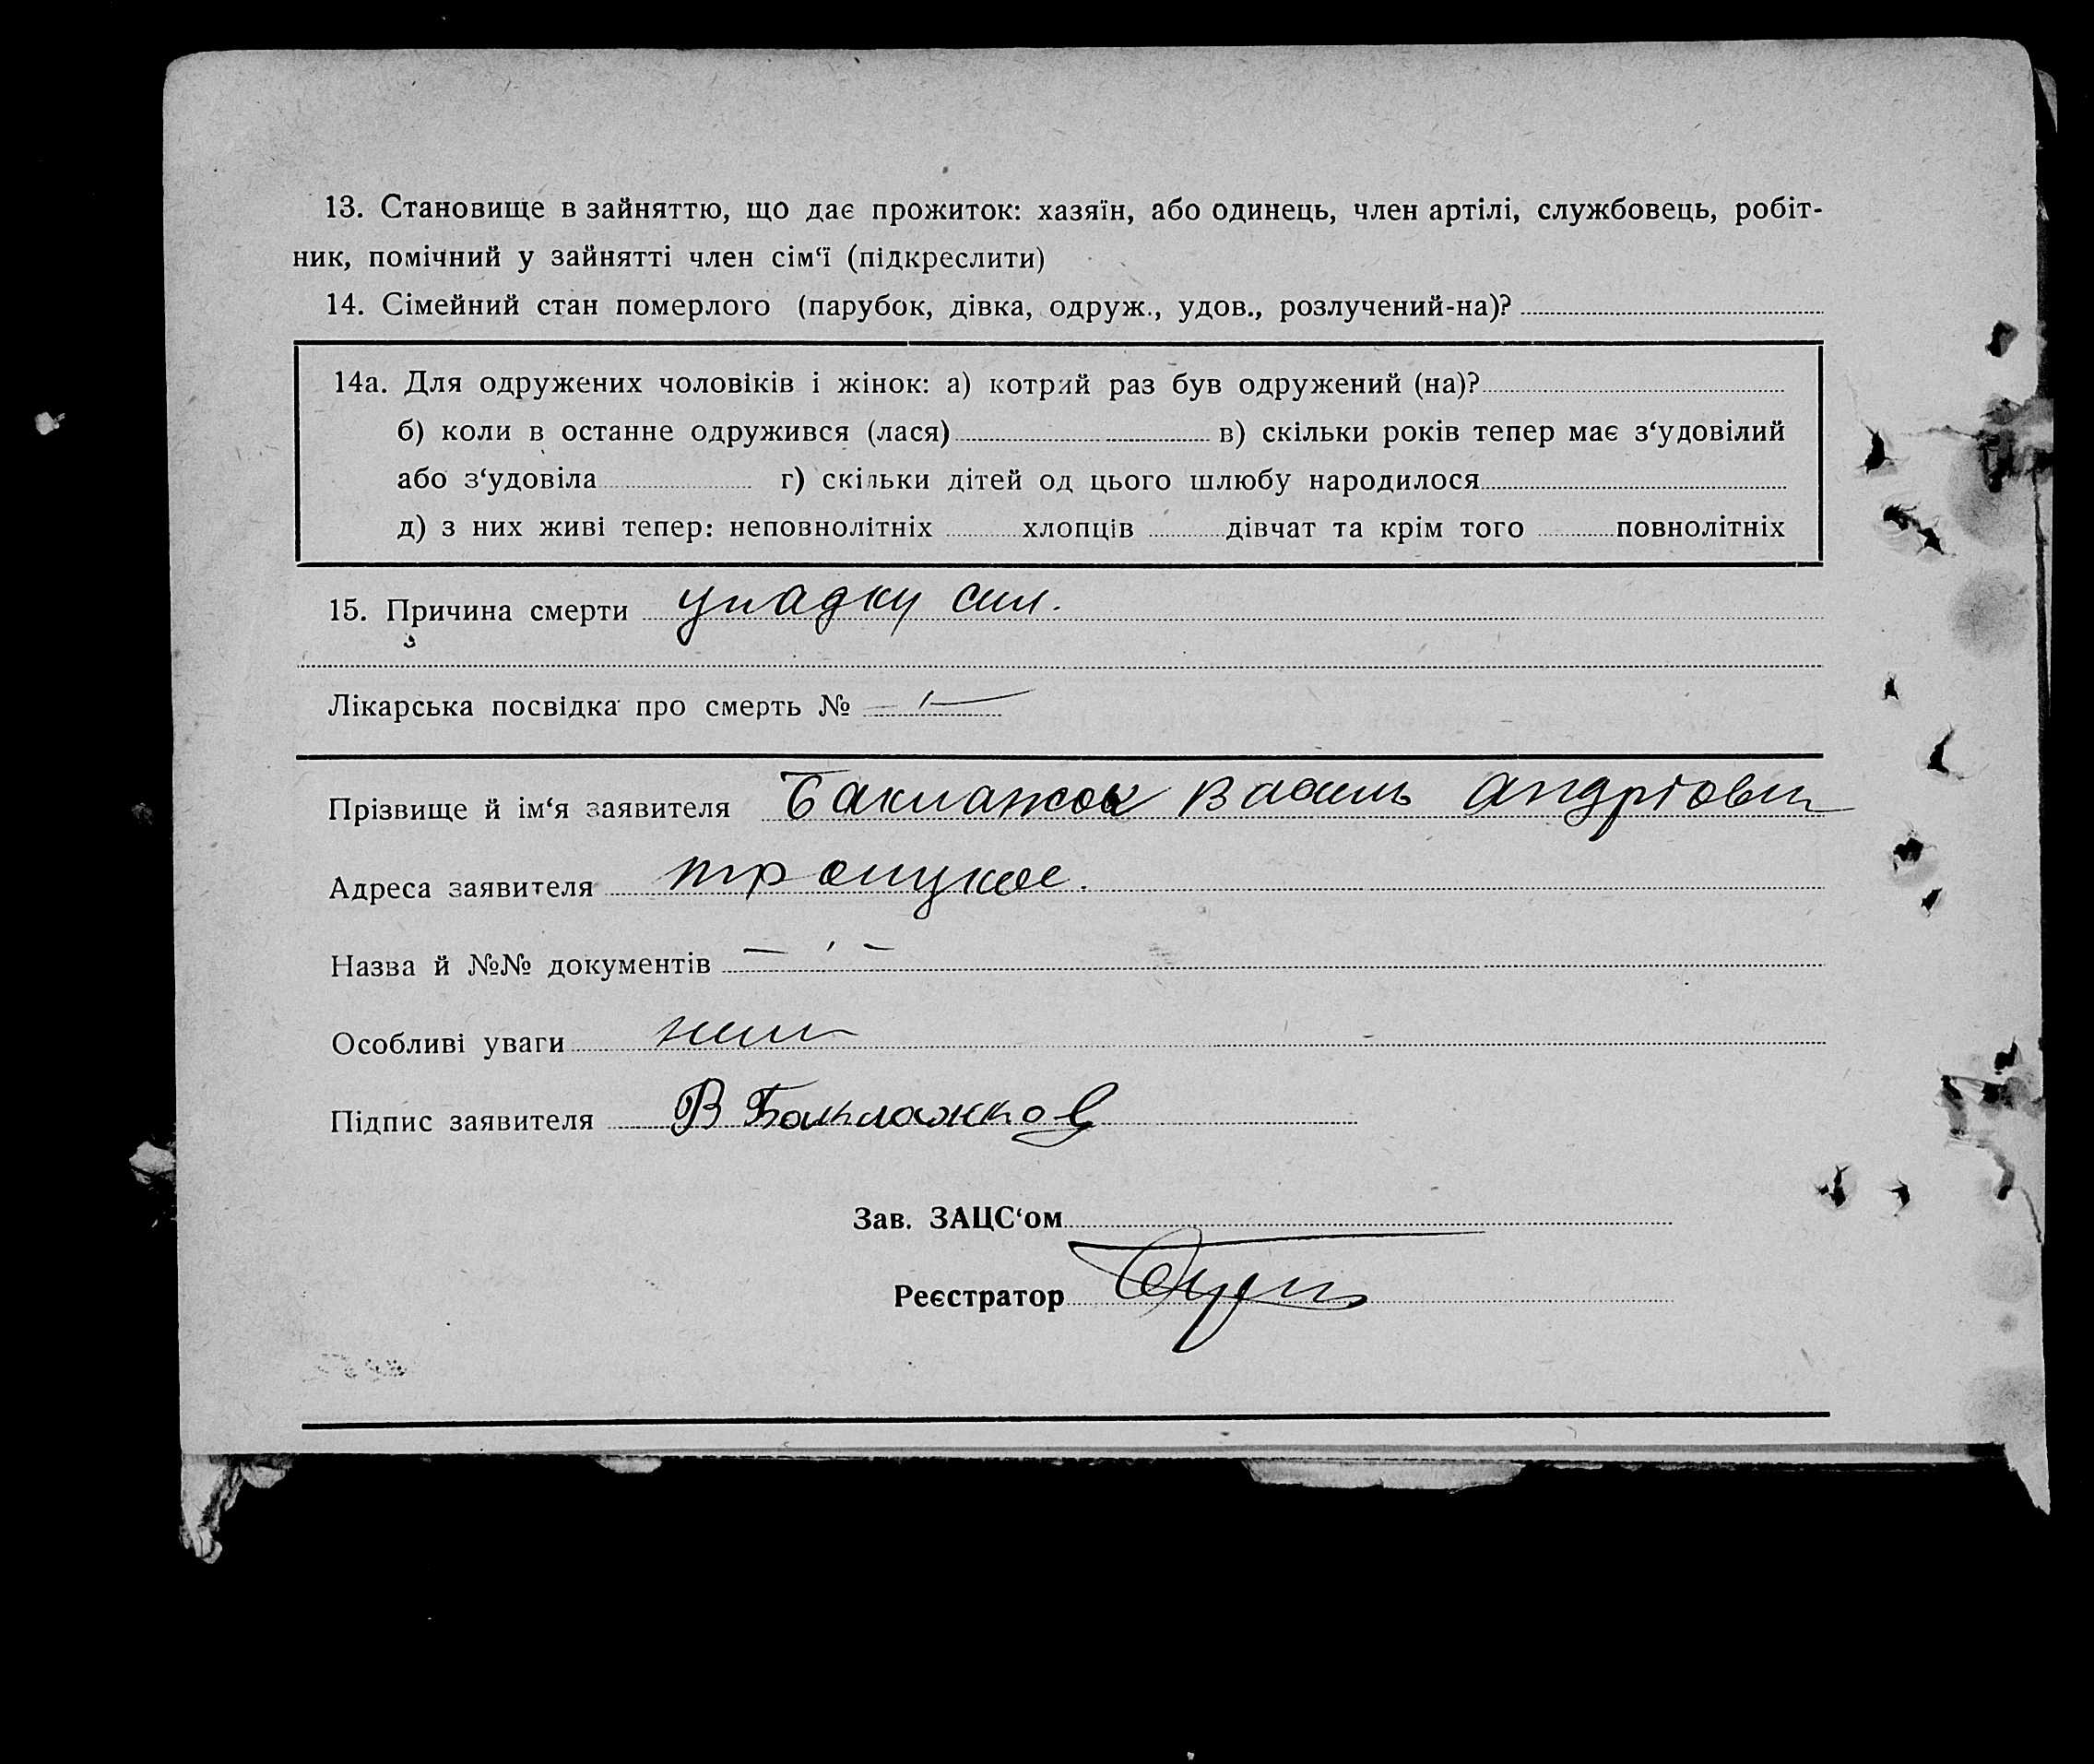 13. Становище в зайняттю, що дає прожиток: хазяїн, або одинець, член артілі, службовець, робіт-
ник, помічний у зайнятті член сім‘ї (підкреслити)
14. Сімейний стан померлого (парубок, дівка, одруж., удов., розлучений-на)?
14а. Для одружених чоловіків і жінок: а) котрий раз був одружений (на)?
б) коли в останне одружився (лася) в) скільки років тепер має з‘удовілий
або з‘удовіла г) скільки дітей од цього шлюбу народилося
д) з них живі тепер: неповнолітніх хлопців дівчат та крім того повнолітніх
15. Причина смерти упадку сил.
Лікарська посвідка про смерть № —
Прізвище й ім‘я заявителя Василь Андрієвич
Адреса заявителя
Назва й №№ документів — —
Особливі уваги
Підпис заявителя В Баклажков
Зав. ЗАЦС‘ом
Реєстратор